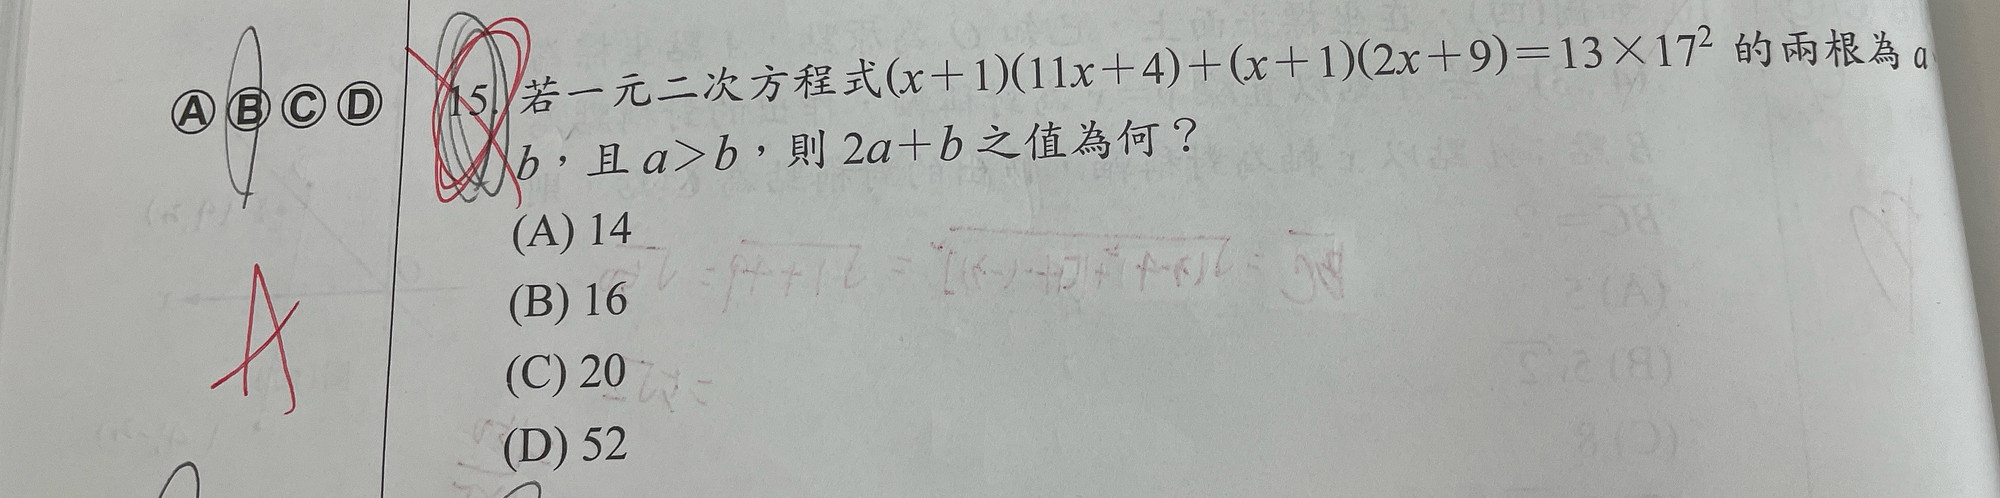 Ⓐ Ⓑ Ⓒ Ⓓ
15. 若一元二次方程式(x+1)(11x+4)+(x+1)(2x+9)=13×17² 的兩根為 a
b，且 a>b，則 2a+b 之值為何？
(A) 14
A
(B) 16
(C) 20
(D) 52